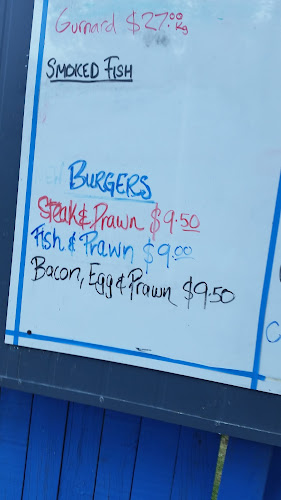 Gurnard $27.00 Kg
SMOKED FISH
BURGERS
Steak & Prawn $9.50
Fish & Prawn $9.00
Bacon, Egg & Prawn $9.50